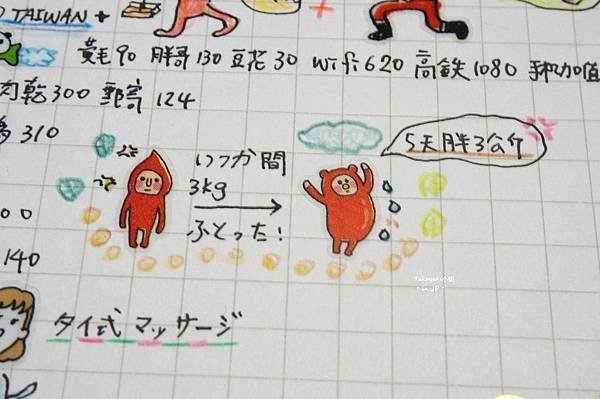 TAIWAN +
黃毛90 胖哥130 豆花30 wifi620 高鉄1080 手机加值
肉乾300 郵寄124
310
いつか間
3kg
ふとった!
5天胖3公斤
00
140
タイ式マッサージ